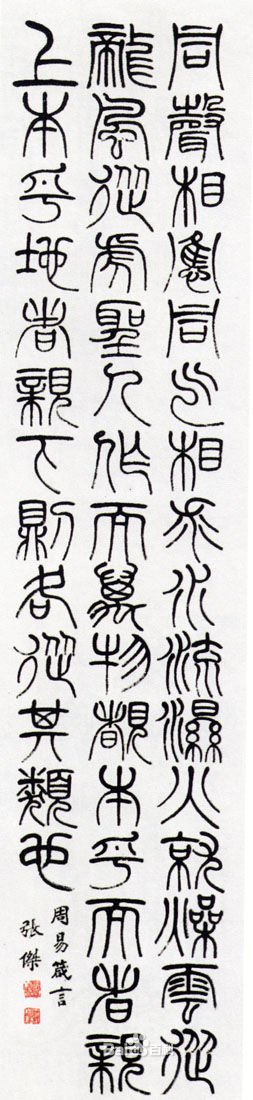 同聲相應同气相求水流濕火就燥雲從
龍風從虎聖人作而萬物覩本乎天者親
上本乎地者親下則各從其類也
周易箴言
張傑
Baidu百科